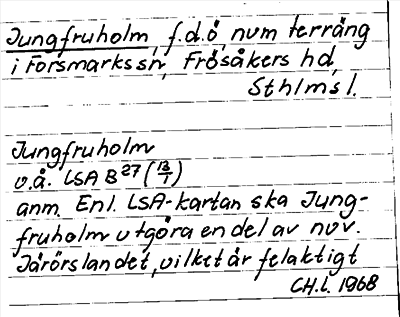 Jungfruholm, f.d.ö, num terräng
i Forsmarks sn, Frösåkers hd,
Sthlms l.
Jungfruholm
u.å. LSA B 27 (13/1)
anm. Enl. LSA-kartan ska Jung-
fruholm utgöra en del av nuv.
Järörslandet, vilket är felaktigt
CH.l. 1968